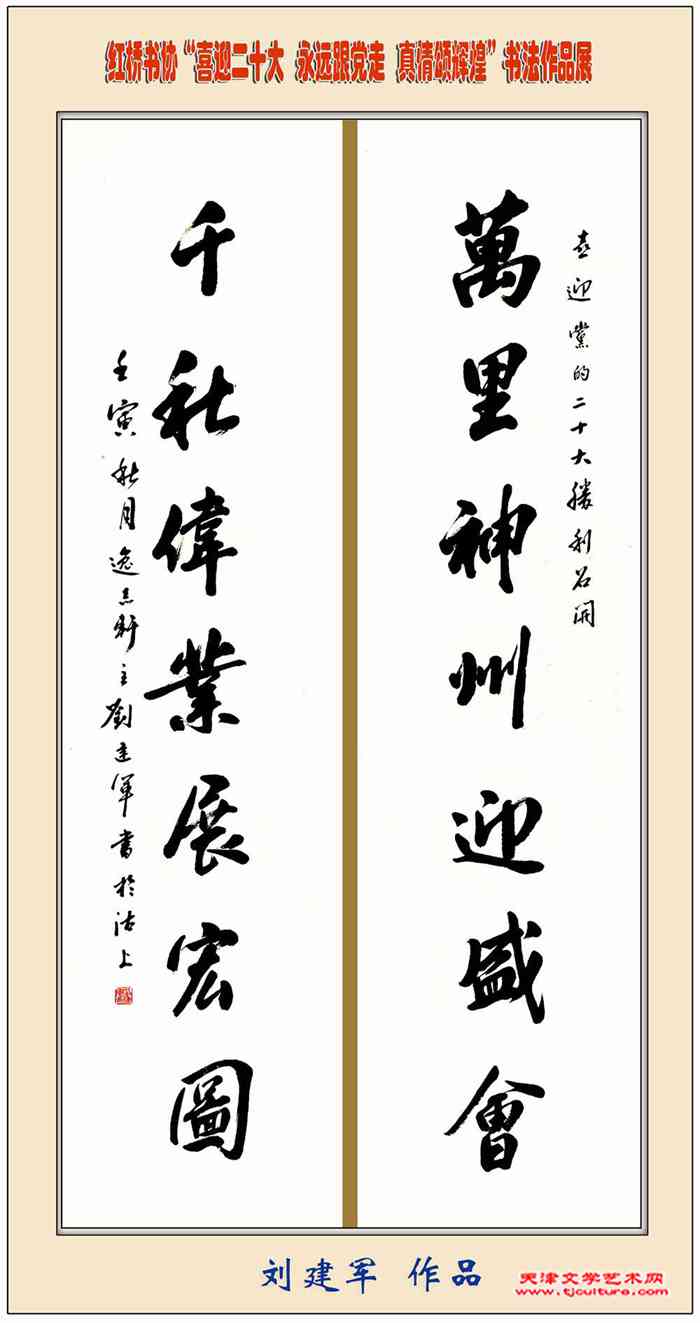 红桥书协“喜迎二十大 永远跟党走 真情颂辉煌”书法作品展
喜迎黨的二十大勝利召開
萬里神州迎盛會
千秋偉業展宏圖
壬寅秋月逸志軒主劉建軍書於沽上
刘建军 作品
天津文学艺术网
www.tjculture.com